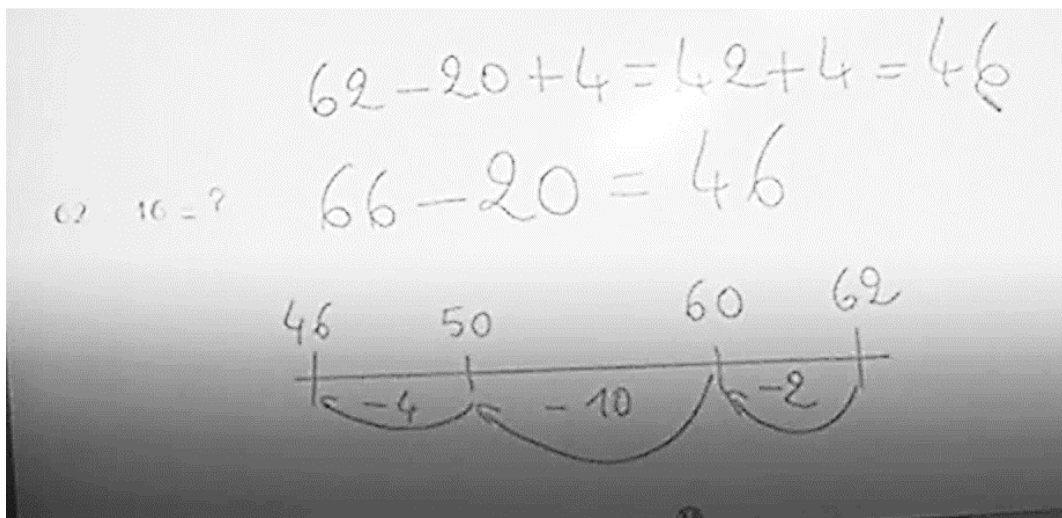 62-20+4=42+4=46
66-20=46
62 16=?
46 50 60 62
-4 -10 -2